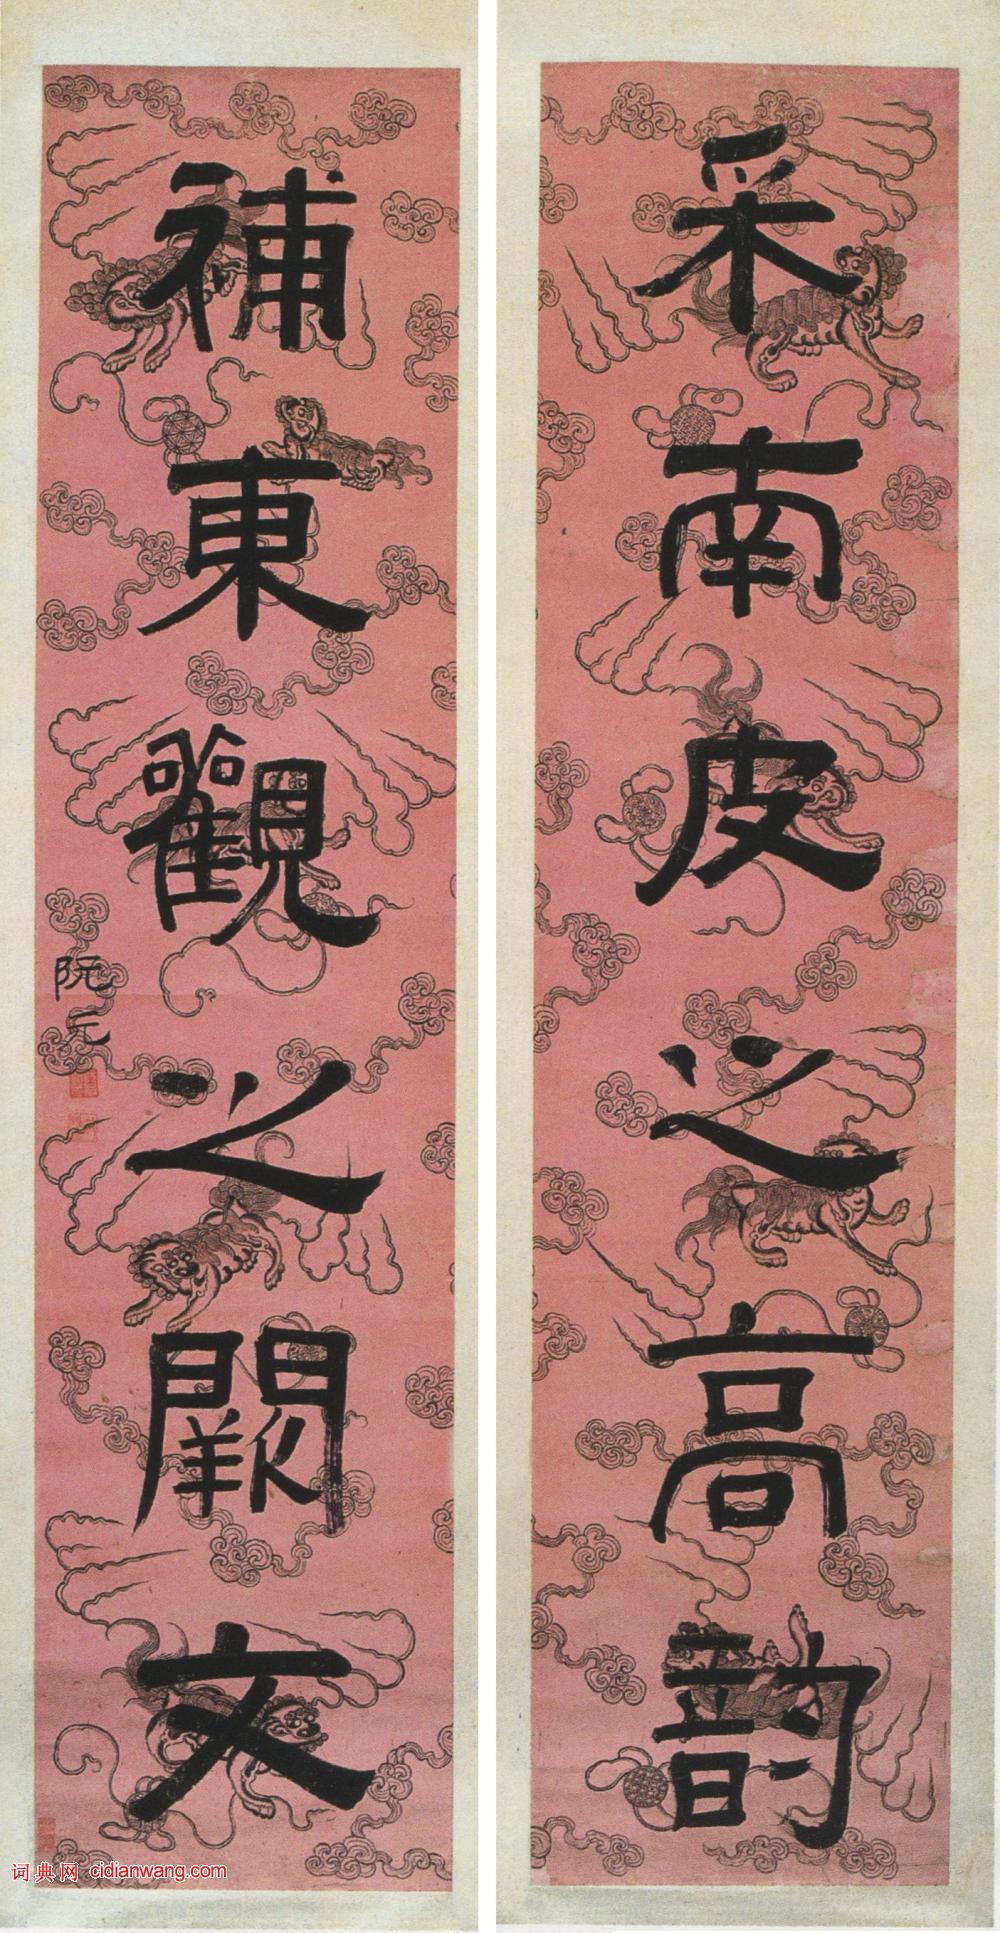 采南皮之高韵
補東觀之闕文
阮元
词典网 cidianwang.com